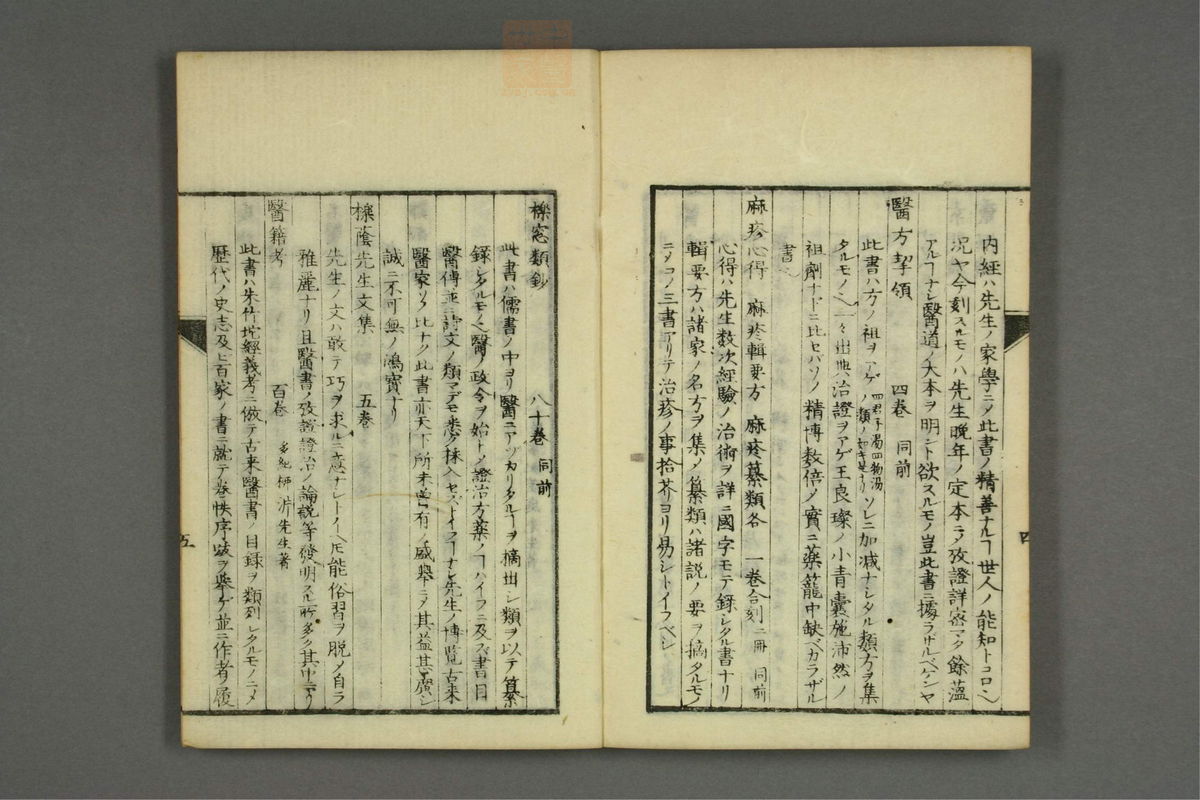 内經ハ先生ノ家學ニメ此書ノ精善ナルヿ世人ノ能知トコロヘ
況ヤ今刻スルモノハ先生晩年ノ定本ニヲ攷證詳密マタ餘薀
アルヿナシ醫道ノ大本ヲ明ント欲スルモノ豈此書ニ據ラザルベケンヤ
醫方挈領 四卷 同前
此書ハ方ノ祖ヲアゲ四君子湯四物湯ノ類ノ如キ是ナリソレニ加減ナシタル類方ヲ集
タルモノ一々出典治證ヲアゲ王良璨ノ小青囊施沛然ノ
祖劑ナドニ比セバソノ精博数倍メ實ニ藥籠中缺ベカラザル
書
麻疹心得 麻疹輯要方 麻疹纂類各一卷合刻二冊 同前
心得ハ先生数次經驗ノ治術ヲ詳ニ國字モテ録シタル書ナリ
輯要方ハ諸家ノ名方ヲ集メ纂類ハ諸説ノ要ヲ摘タルモノ
ニメコノ三書アリテ治疹ノ事拾芥ヨリ易シトイフベシ
四
櫟窓類鈔 八十卷 同前
此書ハ儒書ノ中ヨリ醫ニアヅカリタルヿヲ摘出シ類ヲ以テ纂
録シタルモノ醫ノ政令ヲ始トメ證治方藥ノヿハイフニ及ズ書目
醫傳並ニ詩文ノ類マデモ悉ク採入セズトイフヿナシ先生ノ博覧古来
醫家ソノ比ナク此書亦天下所未曽有ノ盛舉ニヲ其益甚廣シ
誠ニ不可無ノ鴻寶ナリ
櫟蔭先生文集 五卷
先生ノ文ハ敢テ巧ヲ求ルニ意ナシトイヘ𪜈能俗習ヲ脱メ自ラ
雅麗ナリ且醫書ノ攷證證治ノ論説等發明スル所多ク其中ニアリ
醫籍考 百卷 多紀柳沜先生著
此書ハ朱竹垞經義考ニ倣テ古来醫書ノ目録ヲ類列シタルモノニメ
歴代ノ史志及ヒ百家ノ書ニ就テ卷帙序跋ヲ舉ゲ並ニ作者履
五